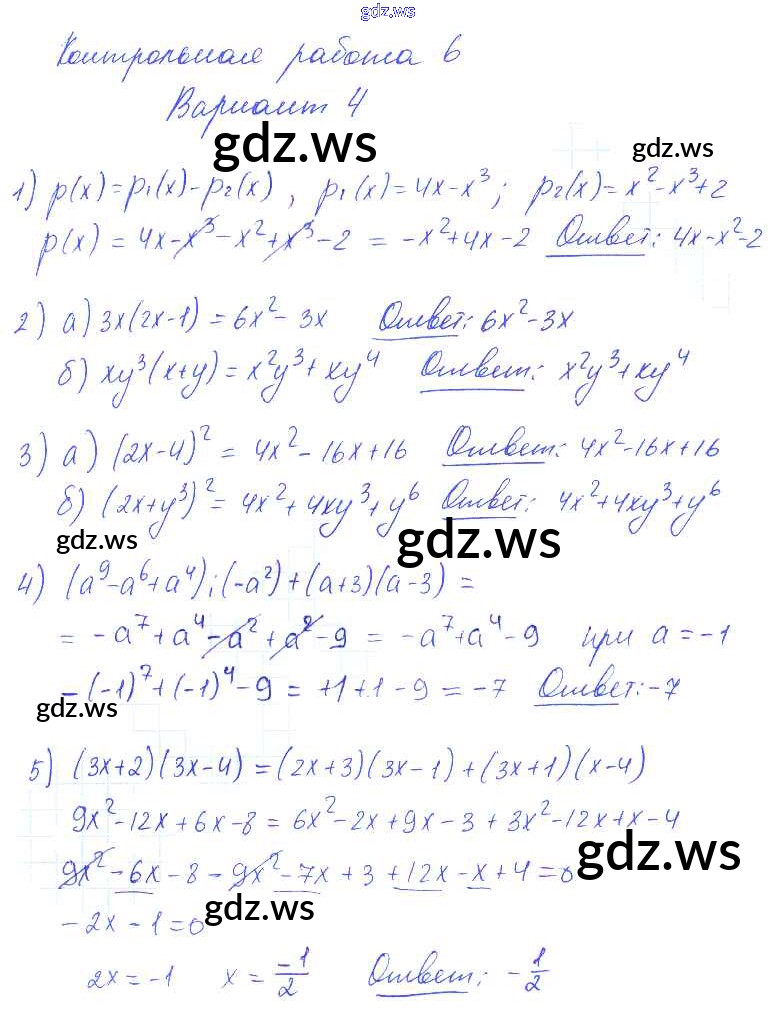 gdz.ws
Контрольная работа 6
Вариант 4
gdz.ws
gdz.ws
1) p(x)=p₁(x)-p₂(x), p₁(x)=4x-x³; p₂(x)=x²-x³+2
p(x) = 4x-x³-x²+x³-2 = -x²+4x-2 Ответ: 4x-x²-2
2) а) 3x(2x-1) = 6x²- 3x Ответ: 6x²-3x
б) xy³(x+y) = x²y³+xy⁴ Ответ: x²y³+xy⁴
3) а) (2x-4)² = 4x²-16x+16 Ответ: 4x²-16x+16
б) (2x+y³)² = 4x²+4xy³+y⁶ Ответ: 4x²+4xy³+y⁶
gdz.ws
gdz.ws
4) (a⁹-a⁶+a⁴):(-a²)+(a+3)(a-3) =
= -a⁷+a⁴-a²+a²-9 = -a⁷+a⁴-9 при a=-1
-(-1)⁷+(-1)⁴-9 = +1+1-9 = -7 Ответ: -7
gdz.ws
5) (3x+2)(3x-4)=(2x+3)(3x-1)+(3x+1)(x-4)
9x²-12x+6x-8 = 6x²-2x+9x-3+3x²-12x+x-4
gdz.ws
9x²-6x-8-9x²-7x+3+12x-x+4=0
gdz.ws
-2x-1=0
2x=-1 x=-1/2 Ответ: -1/2